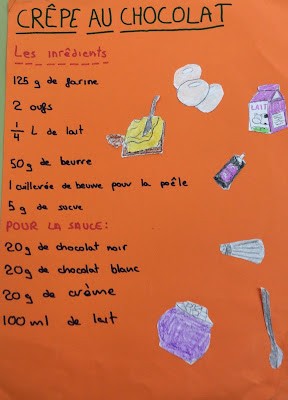 CRÊPE AU CHOCOLAT
Les inrédients
125 g de farine
2 oufs
1/4 L de lait
50g de beurre
1 cuillerée de beurre pour la poêle
5g de sucre
POUR LA SAUCE:
20g de chocolat noir
20g de chocolat blanc
20g de crème
100 ml de lait
LAIT